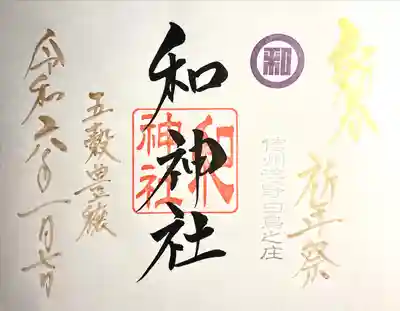 新春
祈正祭
和
信州野白鳥之庄
和神社
和神社
五穀豊穣
令和六年一月七日